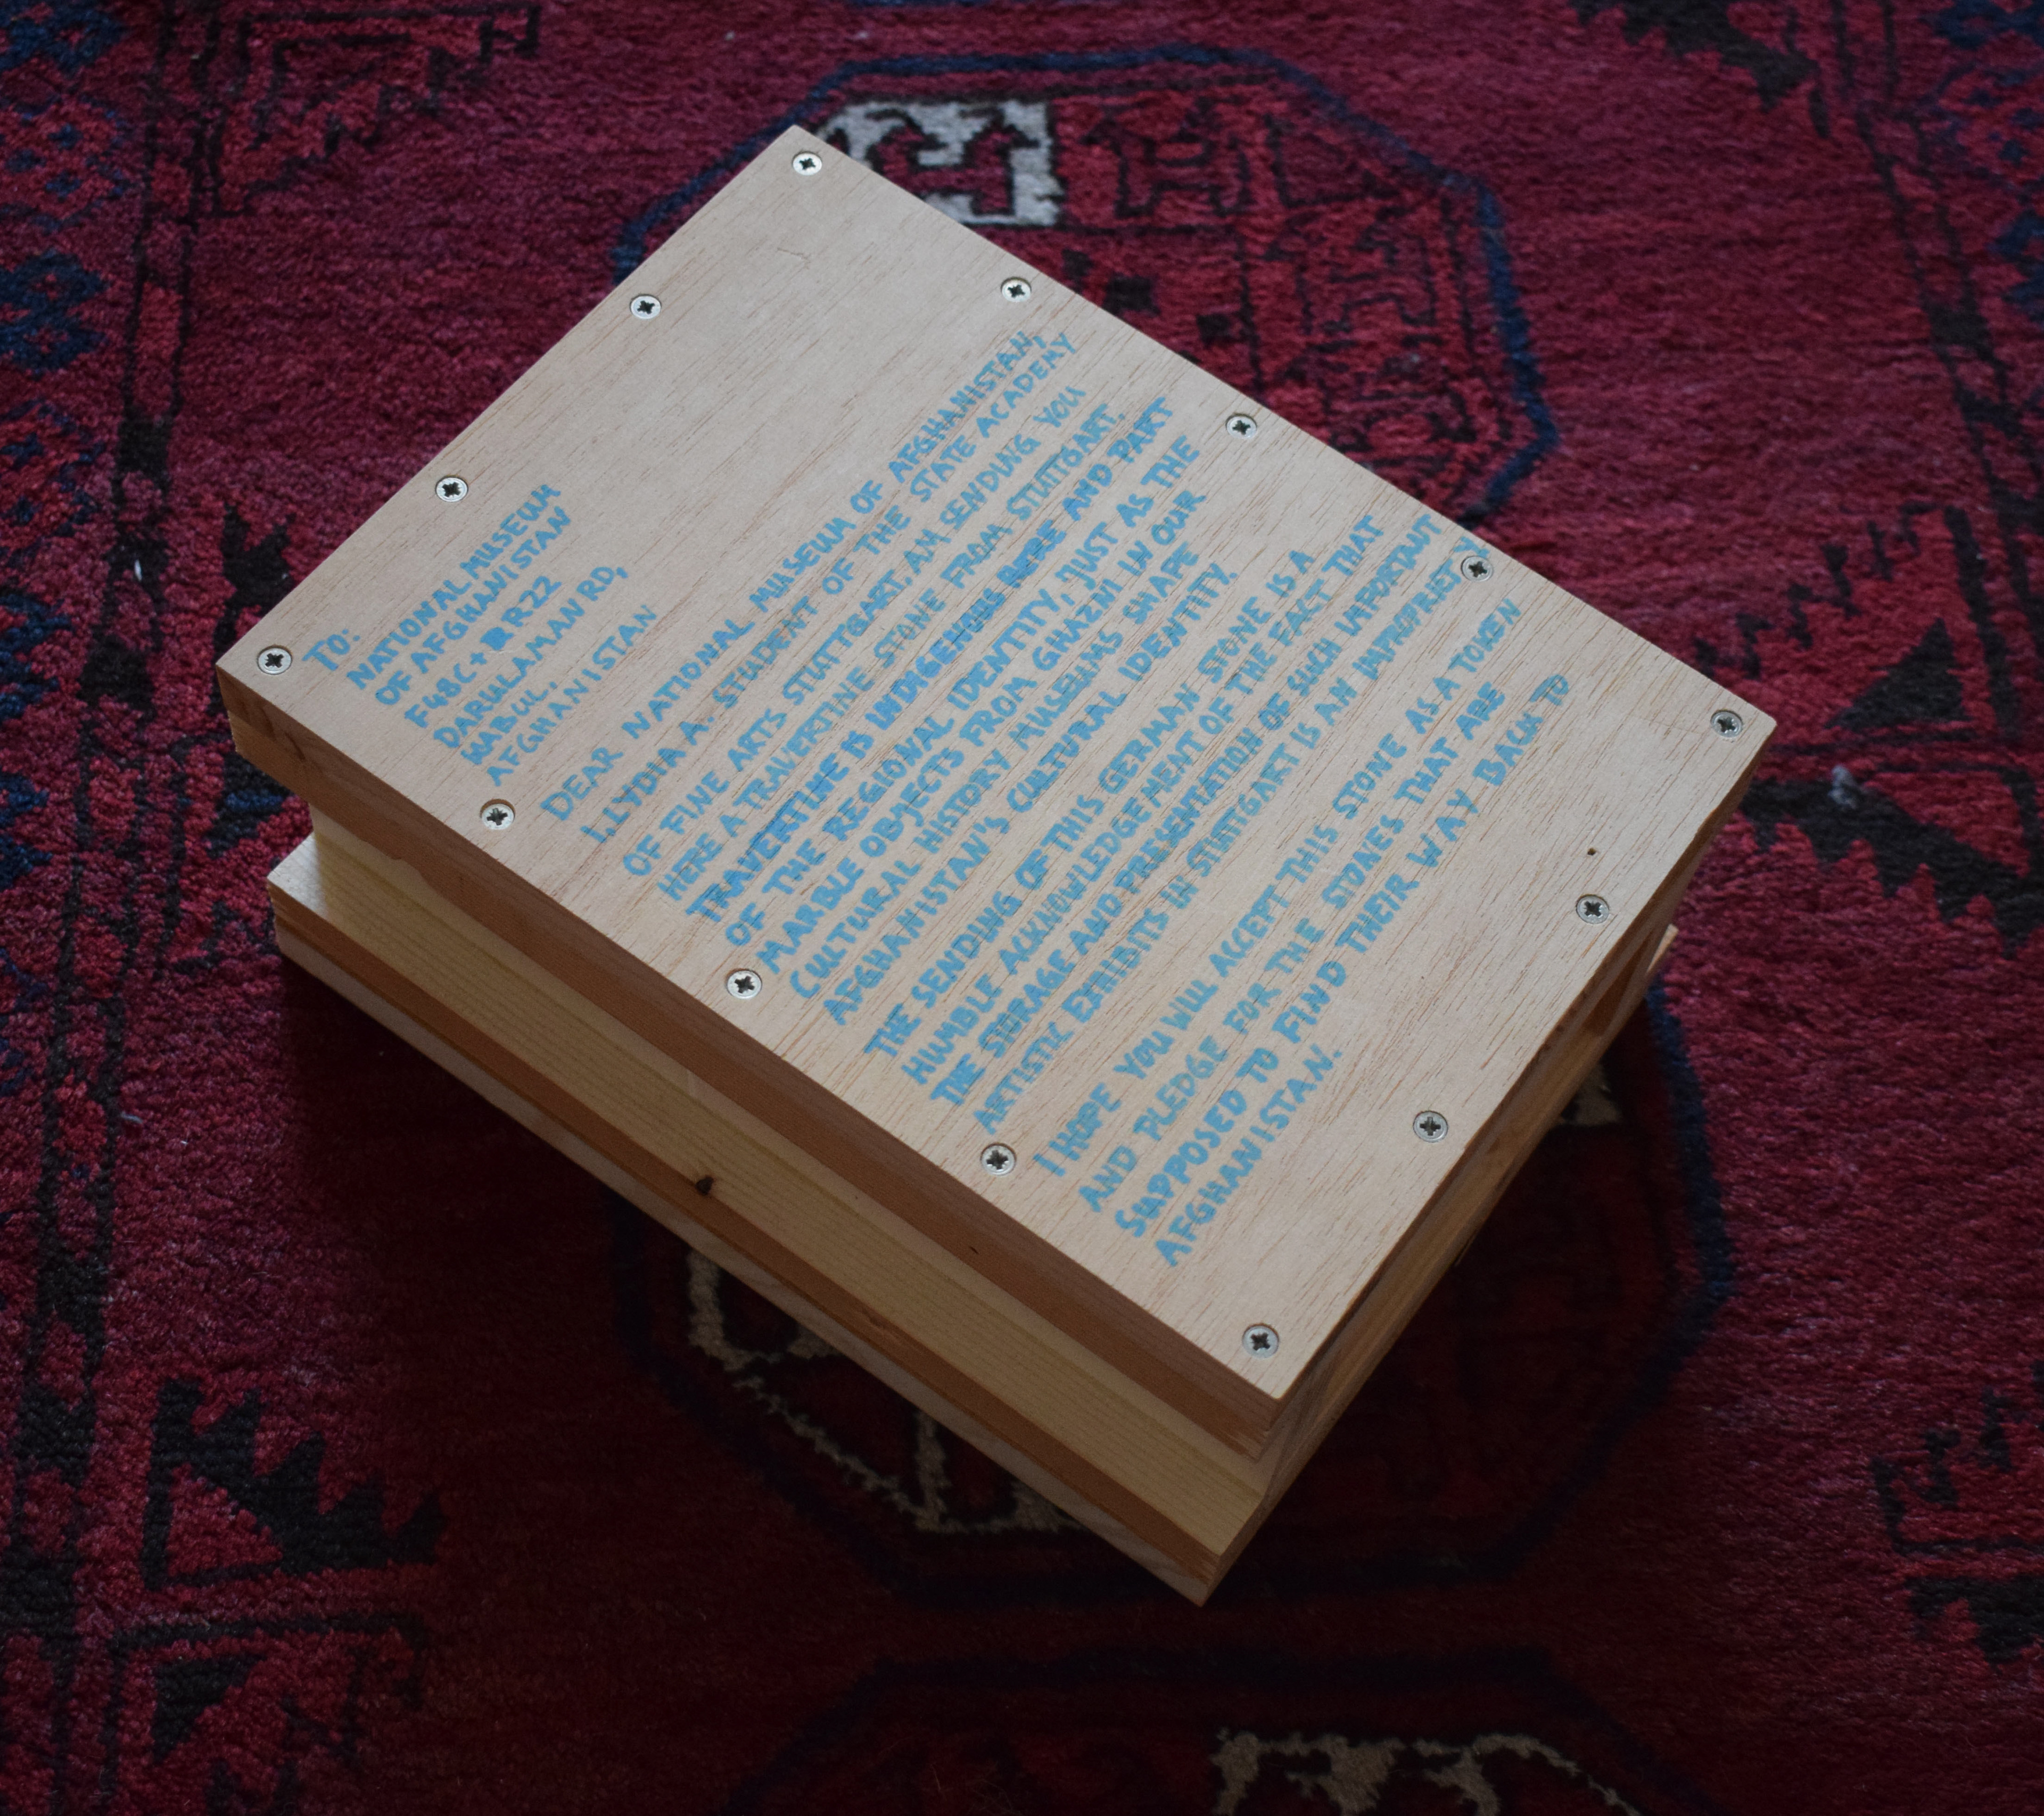 TO:
NATIONAL MUSEUM
OF AFGHANISTAN
F48C+ R22
DARULAMAN RD,
KABUL,
AFGHANISTAN
DEAR NATIONAL MUSEUM OF AFGHANISTAN,
I, LYDIA A. STUDENT OF THE STATE ACADEMY
OF FINE ARTS STUTTGART, AM SENDING YOU
HERE A TRAVERTINE STONE FROM STUTTGART.
TRAVERTINE IS INDIGENOUS AND PART
OF THE REGIONAL IDENTITY, JUST AS THE
MARBLE OBJECTS FROM GHAZNI IN OUR
CULTURAL HISTORY MUSEUMS SHAPE
AFGHANISTAN'S CULTURAL IDENTITY.
THE SENDING OF THIS GERMAN STONE IS A
HUMBLE ACKNOWLEDGEMENT OF THE FACT THAT
THE STORAGE AND PRESENTATION OF SUCH IMPORTANT
ARTISTIC EXHIBITS IN STUTTGART IS AN IMPROPRIETY
I HOPE YOU WILL ACCEPT THIS STONE AS A TOKEN
AND PLEDGE FOR THE STONES THAT ARE
SUPPOSED TO FIND THEIR WAY BACK TO
AFGHANISTAN.